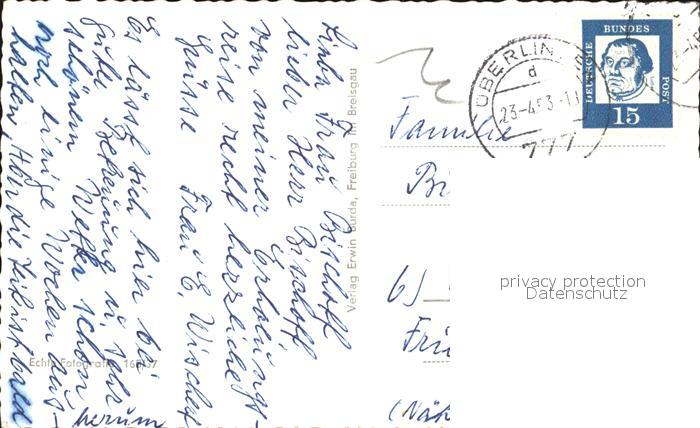 Liebe Frau Bischoff
lieber Herr Bischoff
von meiner Erholungs-
reise recht herzliche
Grüsse Frau E. Wischef
Es lässt sich hier bei
guter Betreuung u. sehr
schönem Wetter schon
noch einige Wochen aus-
halten. Aber die Zeit ist bald
herum
Verlag Erwin Burda, Freiburg im Breisgau
Echte Fotografie
ÜBERLIN
d
23-4.63-1
777
DEUTSCHE
BUNDES
POST
15
Familie
Bi
Fri
(Näh
privacy protection
Datenschutz